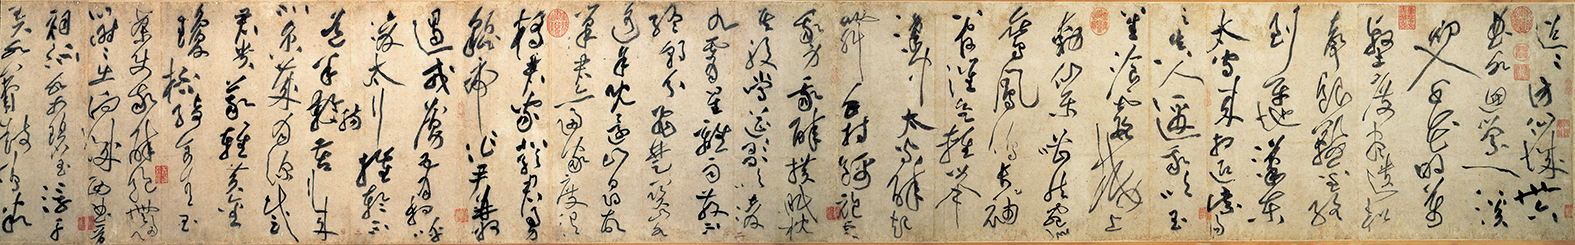 迢迢訪仙城卅六
曲水回縈一溪
初入千花明萬
壑度盡松
聲銀鞍金絡
到平地漢東
太守來相迎紫陽
之真人邀我吹玉
笙餐霞樓上
動仙樂嘈然宛似
鸞鳳鳴袖長管
催欲輕舉
漢中太守醉起
舞手持錦袍覆
我身我醉橫眠枕
其股當筵意氣凌
九霄星離雨散不
終朝分飛楚關山水
遙余既還山尋故
巢君亦歸家度渭
橋君家嚴君勇
貔虎作尹并州
遏戎虜五月相呼
度太行摧輪不
道羊腸苦行來
北京歲月深感
君貴義輕黃金
瓊杯綺食青玉
案使我醉飽無歸心
時時出向城西曲晉
祠流水如碧玉浮舟
弄水簫鼓鳴微波